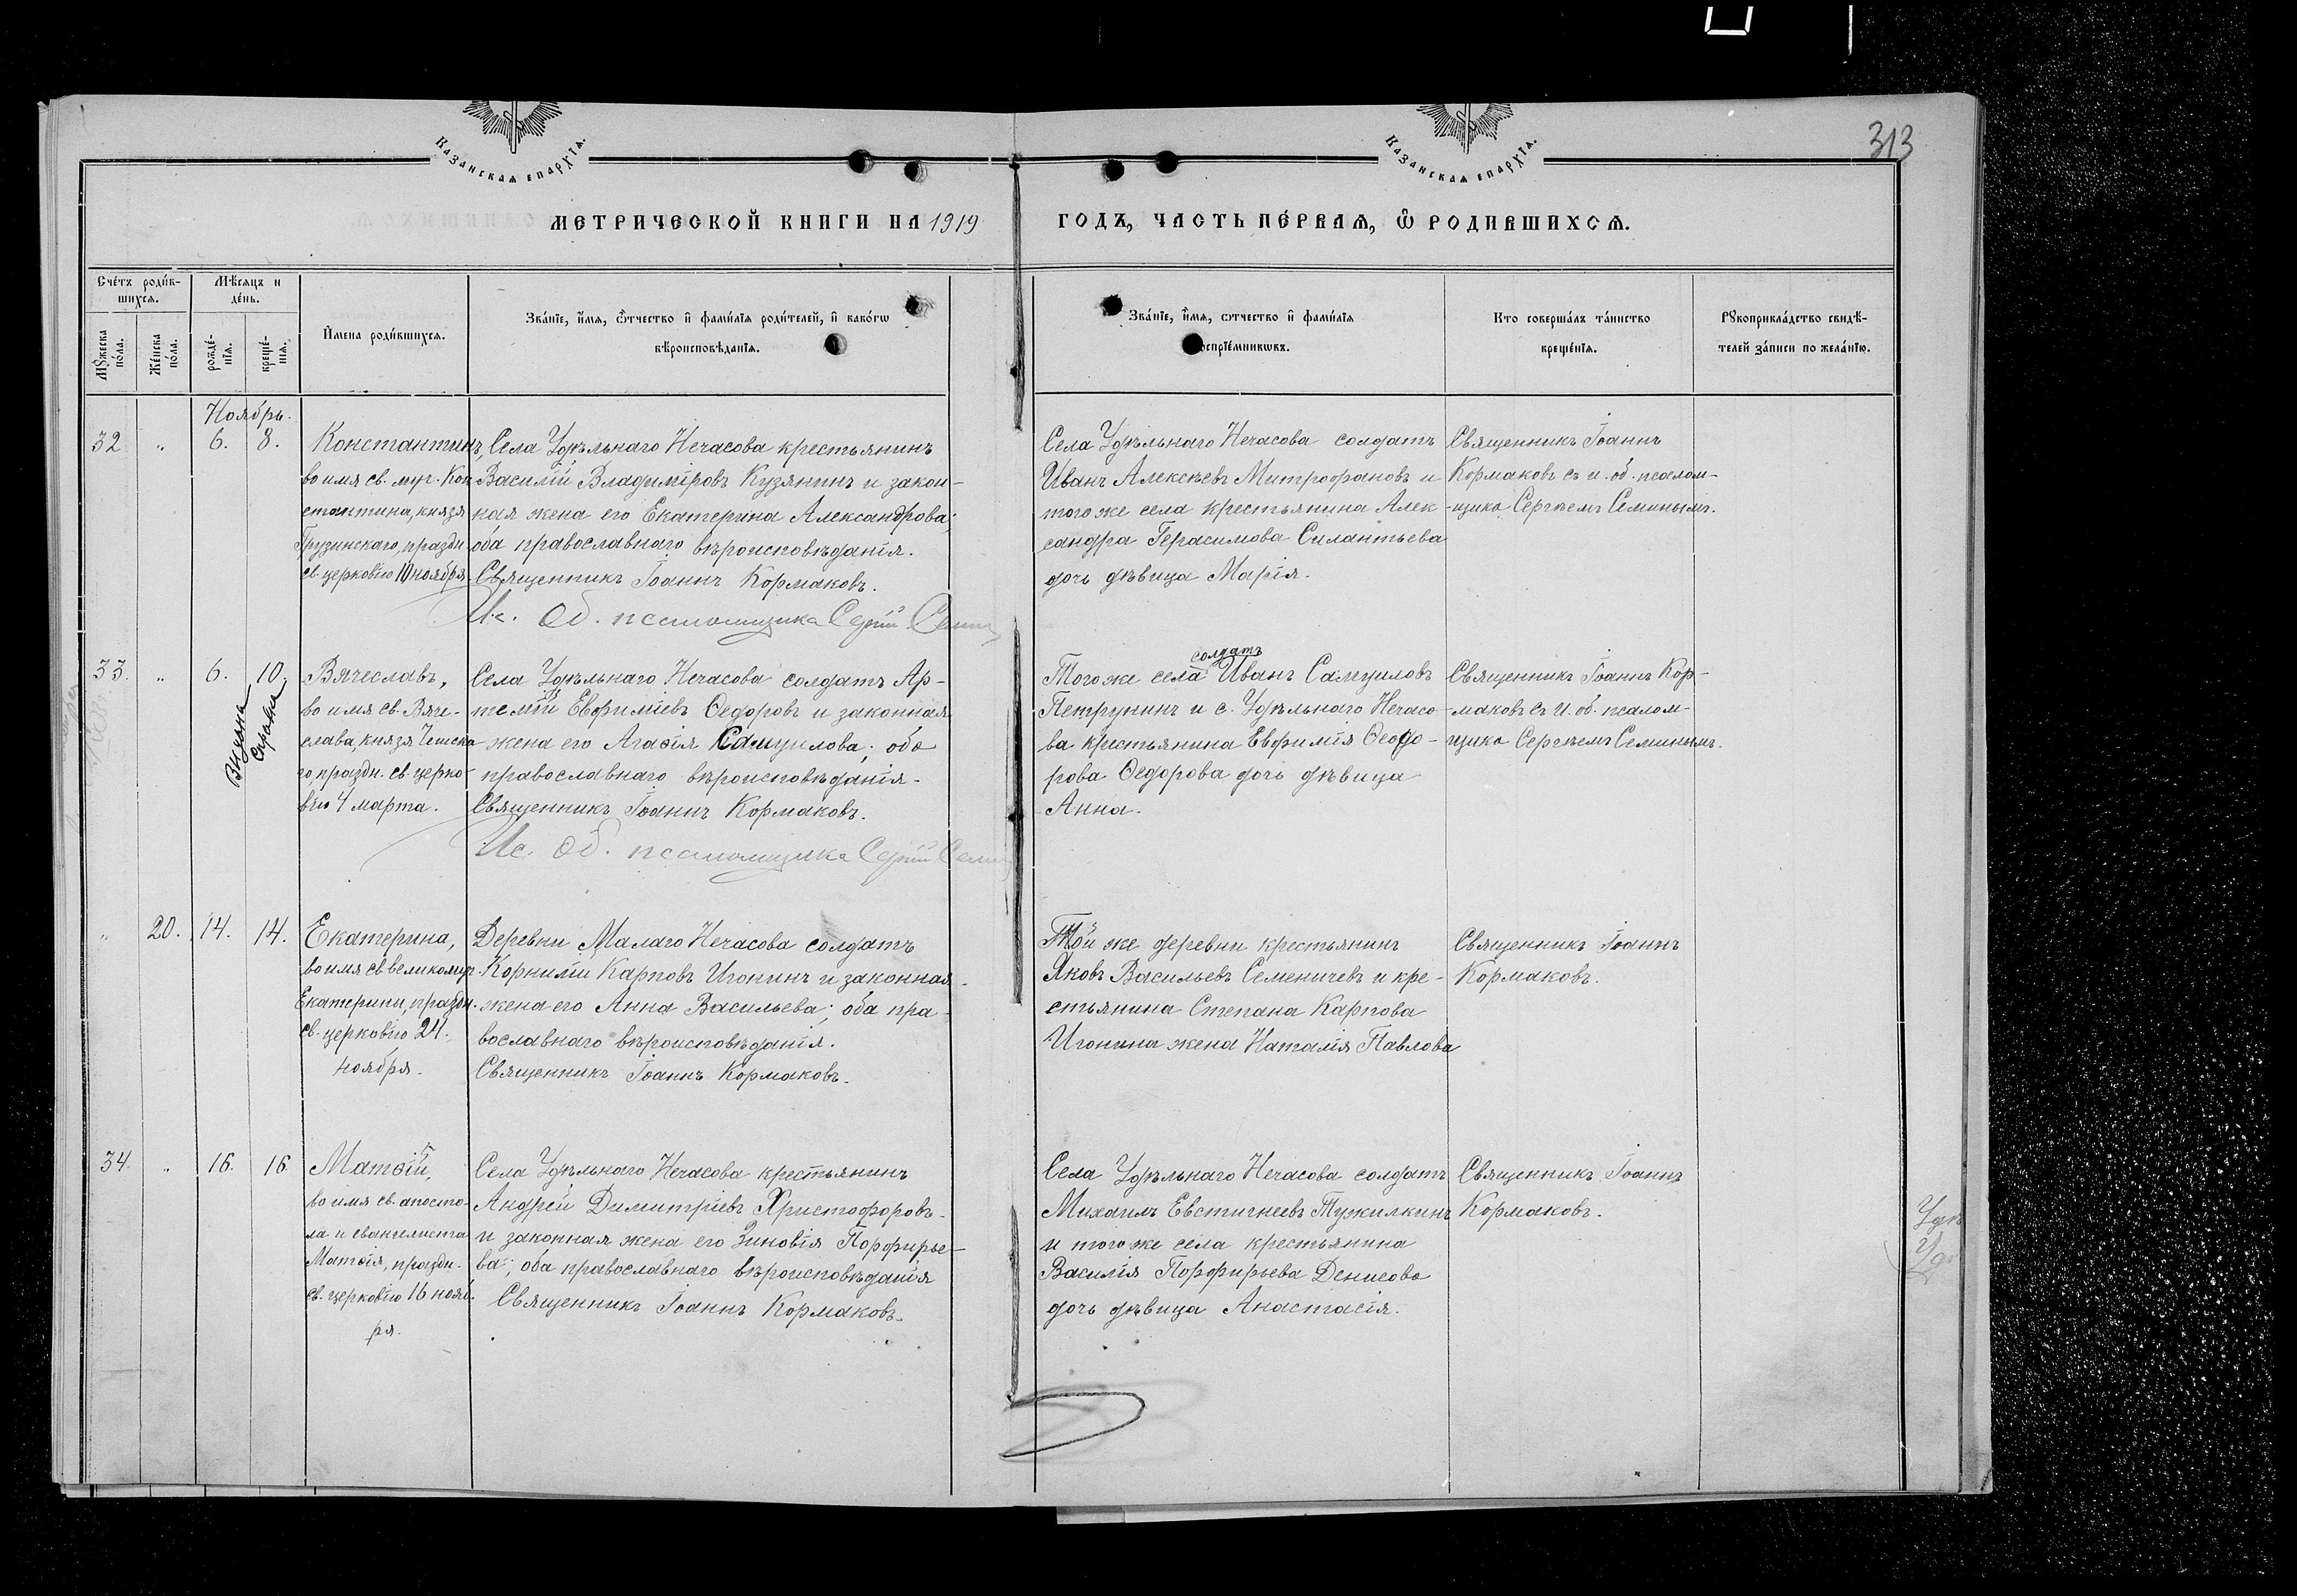 313
КАЗАНСКАЯ ЕПАРХІЯ.
КАЗАНСКАЯ ЕПАРХІЯ.
МЕТРИЧЕСКОЙ КНИГИ НА 1919 ГОДЪ, ЧАСТЬ ПЕРВАЯ, Ѡ РОДИВШИХСЯ.
Счетъ родив-
шихся.
Мужеска
пола.
Женска
пола.
Мѣсяцъ и
день.
рожде-
нія.
креще-
нія.
Имена родившихся.
Званіе, имя, ѿчество и фамилія родителей, и какогѡ
вѣроисповѣданія.
Званіе, имя, ѿчество и фамилія
оспріемникѡвъ.
Кто совершалъ таинство
крещенія.
Рукоприкладство свидѣ-
телей записи по желанію.
Ноябрь.
32
"
6.
8.
Константинъ,
во имя св. муч. Кон
стантина, князя
Грузинскаго, праздн.
св. церковію 10 ноября.
Села Удѣльнаго Нечасова крестьянинъ
Василій Владиміровъ Кузянинъ и закон-
ная жена его Екатерина Александрова;
оба православнаго вѣроисповѣданія.
Священникъ Іоаннъ Кормаковъ.
Ис. Об. псаломщика Сергій Семин
Села Удѣльнаго Нечасова солдатъ
Иванъ Алексѣевъ Митрофановъ и
того же села крестьянина Алек-
сандра Герасимова Силантьева
дочь дѣвица Марія.
Священникъ Іоаннъ
Кормаковъ съ и. об. псалом-
щика Сергѣемъ Семинымъ.
33.
"
6.
10.
Выдана
справка
Вячеславъ,
во имя св. Вяче-
слава, князя Чешска-
го, праздн. св. церко-
вію 4 марта.
Села Удѣльнаго Нечасова солдатъ Ар-
темій Евфиміевъ Ѳедоровъ и законная
жена его Агаѳія Самуилова; оба
православнаго вѣроисповѣданія.
Священникъ Іоаннъ Кормаковъ.
Ис. Об. псаломщика Сергій Семин
Того же села солдатъ Иванъ Самуиловъ
Петрунинъ и с. Удѣльнаго Нечасо-
ва крестьянина Евфимія Ѳеодо-
рова Ѳедорова дочь дѣвица
Анна.
Священникъ Іоаннъ Кор-
маковъ съ и. об. псалом-
щика Сергѣемъ Семинымъ.
"
20.
14.
14.
Екатерина,
во имя св великомуч.
Екатерины, праздн.
св. церковію 24.
ноября.
Деревни Малаго Нечасова солдатъ
Корнилій Карповъ Игонинъ и законная
жена его Анна Васильева; оба пра-
вославнаго вѣроисповѣданія.
Священникъ Іоаннъ Кормаковъ.
Той же деревни крестьянинъ
Яковъ Васильевъ Семеничевъ и кре-
стьянина Степана Карпова
Игонина жена Наталія Павлова
Священникъ Іоаннъ
Кормаковъ.
34.
"
16.
16
Матѳій,
во имя св. апосто-
ла и евангелиста
Матѳія, праздн.
св. церковію 16 нояб.
ря.
Села Удѣльнаго Нечасова крестьянинъ
Андрей Димитріевъ Христофоровъ
и законная жена его Зиновія Порфирье-
ва; оба православнаго вѣроисповѣданія
Священникъ Іоаннъ Кормаковъ.
Села Удѣльнаго Нечасова солдатъ
Михаилъ Евстигнеевъ Тужилкинъ
и того же села крестьянина
Василія Порфирьева Денисова
дочь дѣвица Анастасія.
Священникъ Іоаннъ
Кормаковъ.